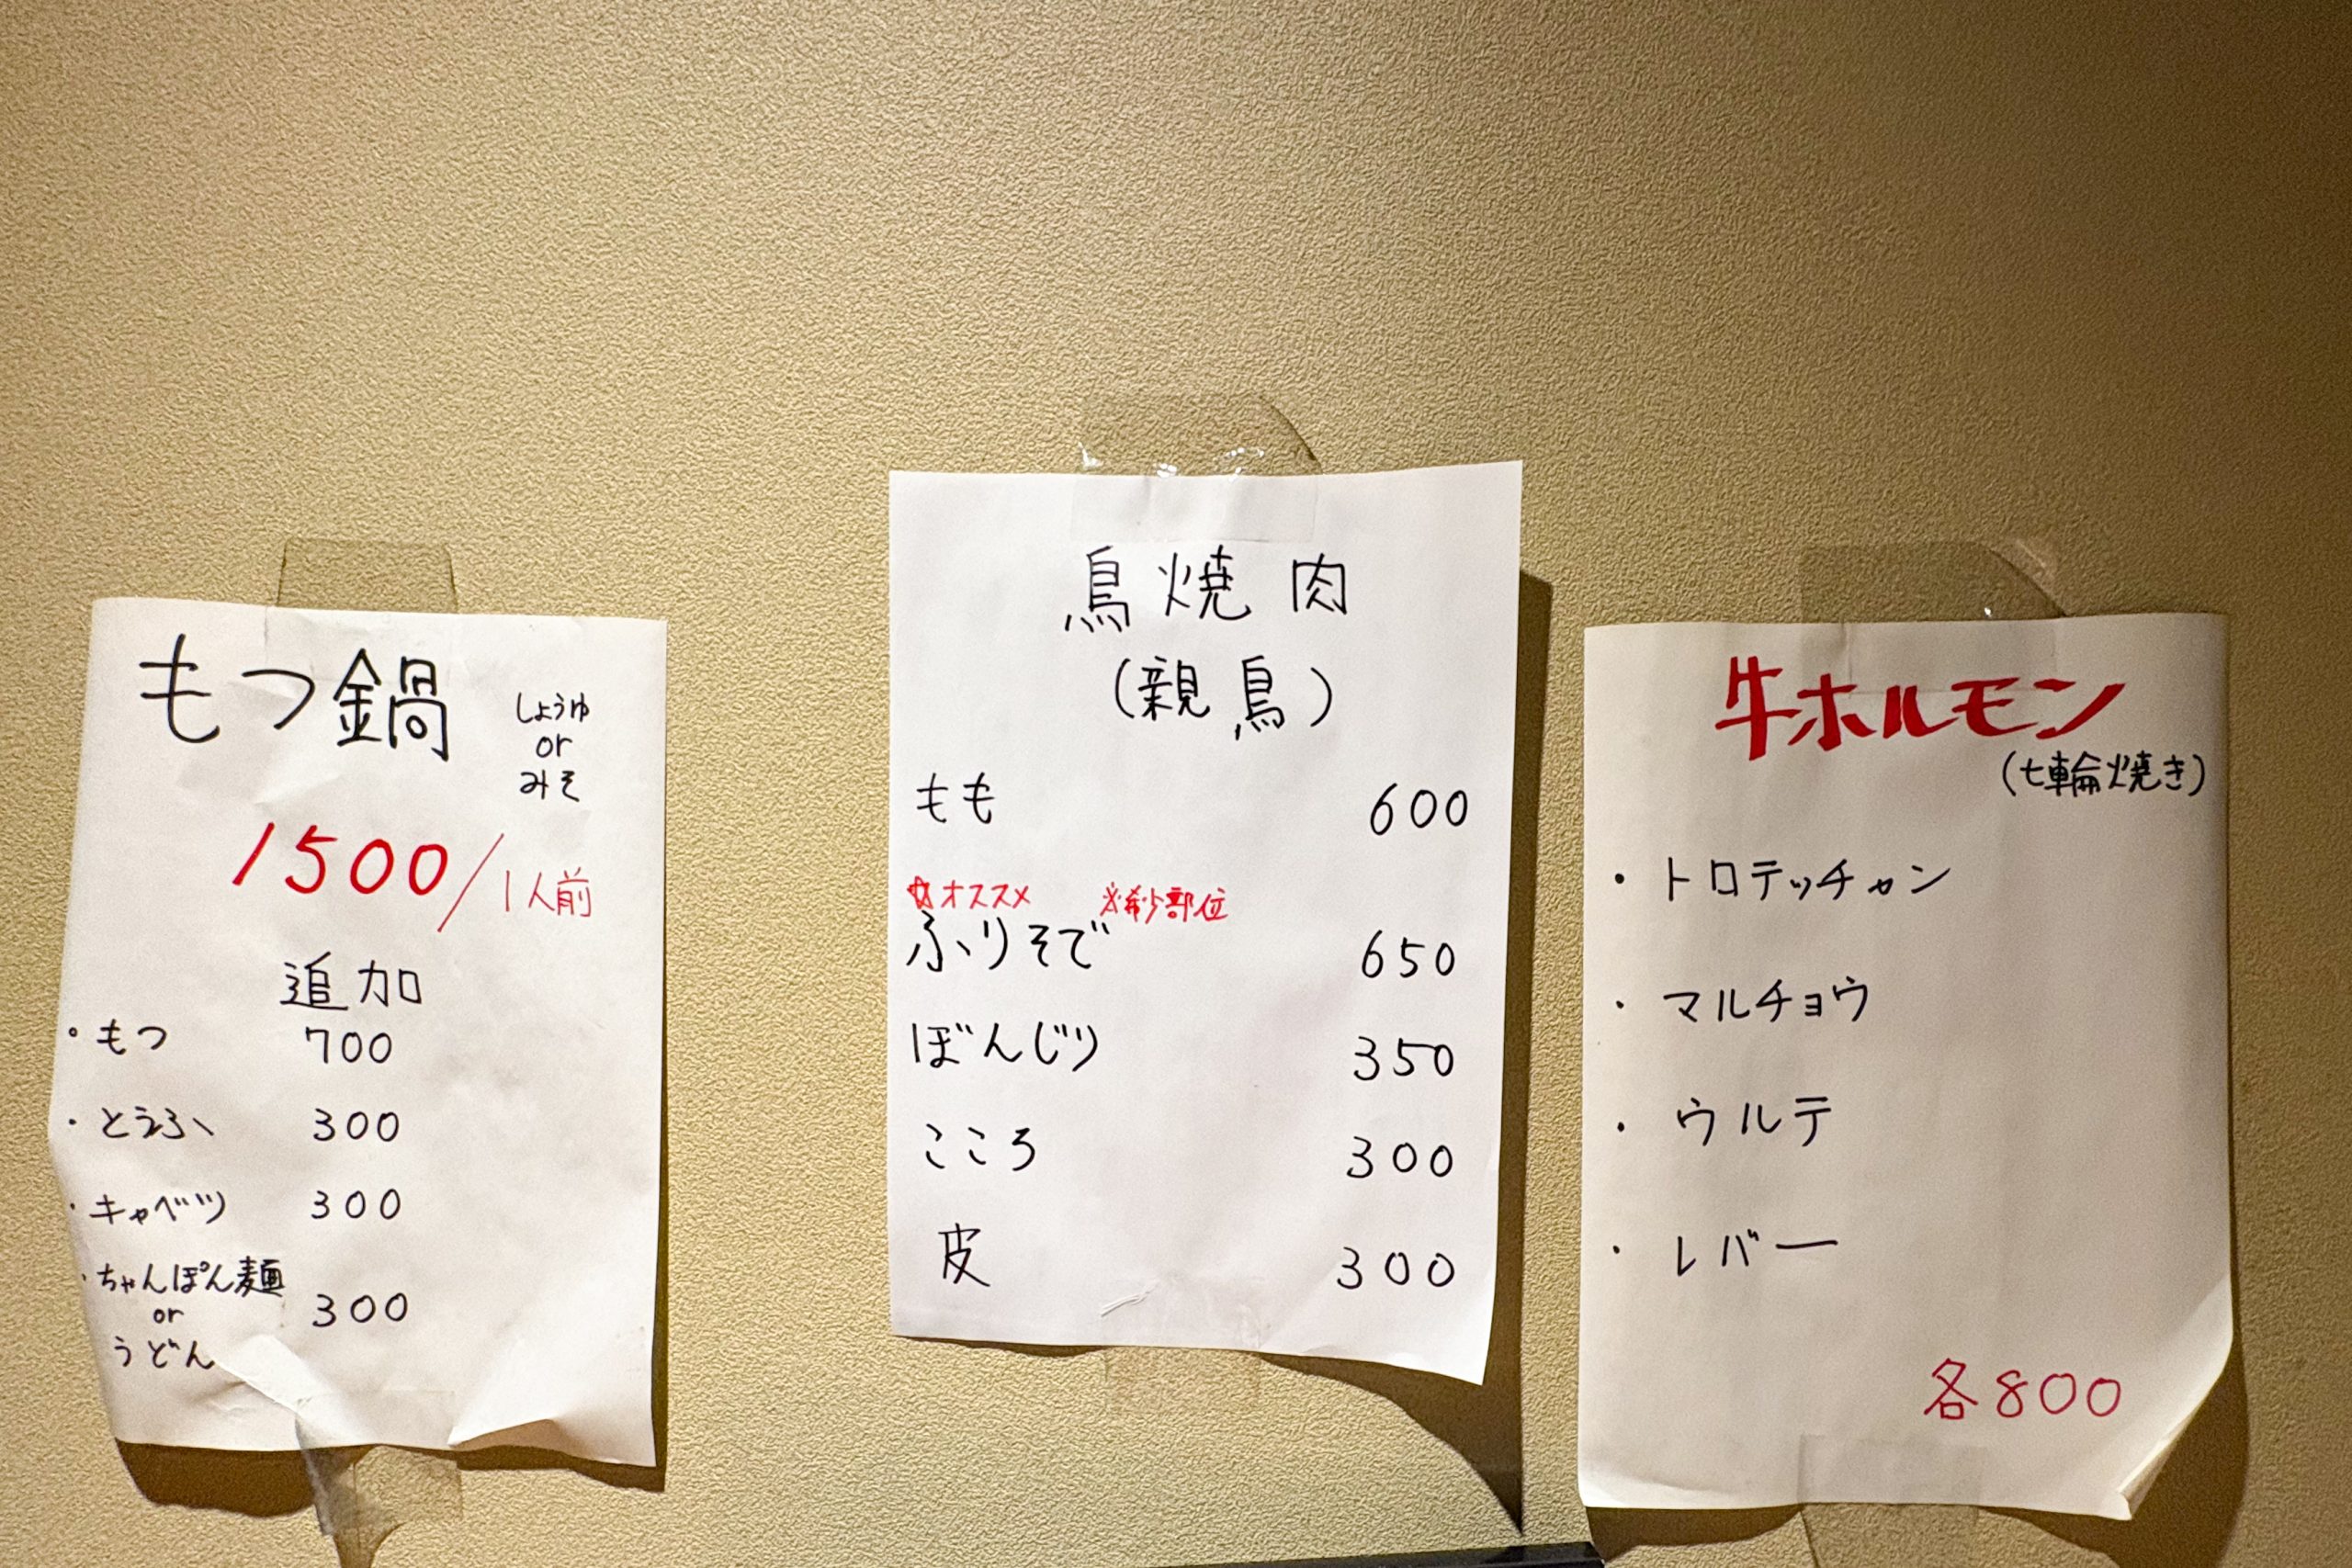 もつ鍋
しょうゆ
or
みそ
1500/1人前
追加
・もつ 700
・とうふ 300
・キャベツ 300
・ちゃんぽん麺
or
うどん 300
鳥焼肉
(親鳥)
もも 600
☆オススメ ※希少部位
ふりそで 650
ぼんじり 350
こころ 300
皮 300
牛ホルモン
(七輪焼き)
・トロテッチャン
・マルチョウ
・ウルテ
・レバー
各800